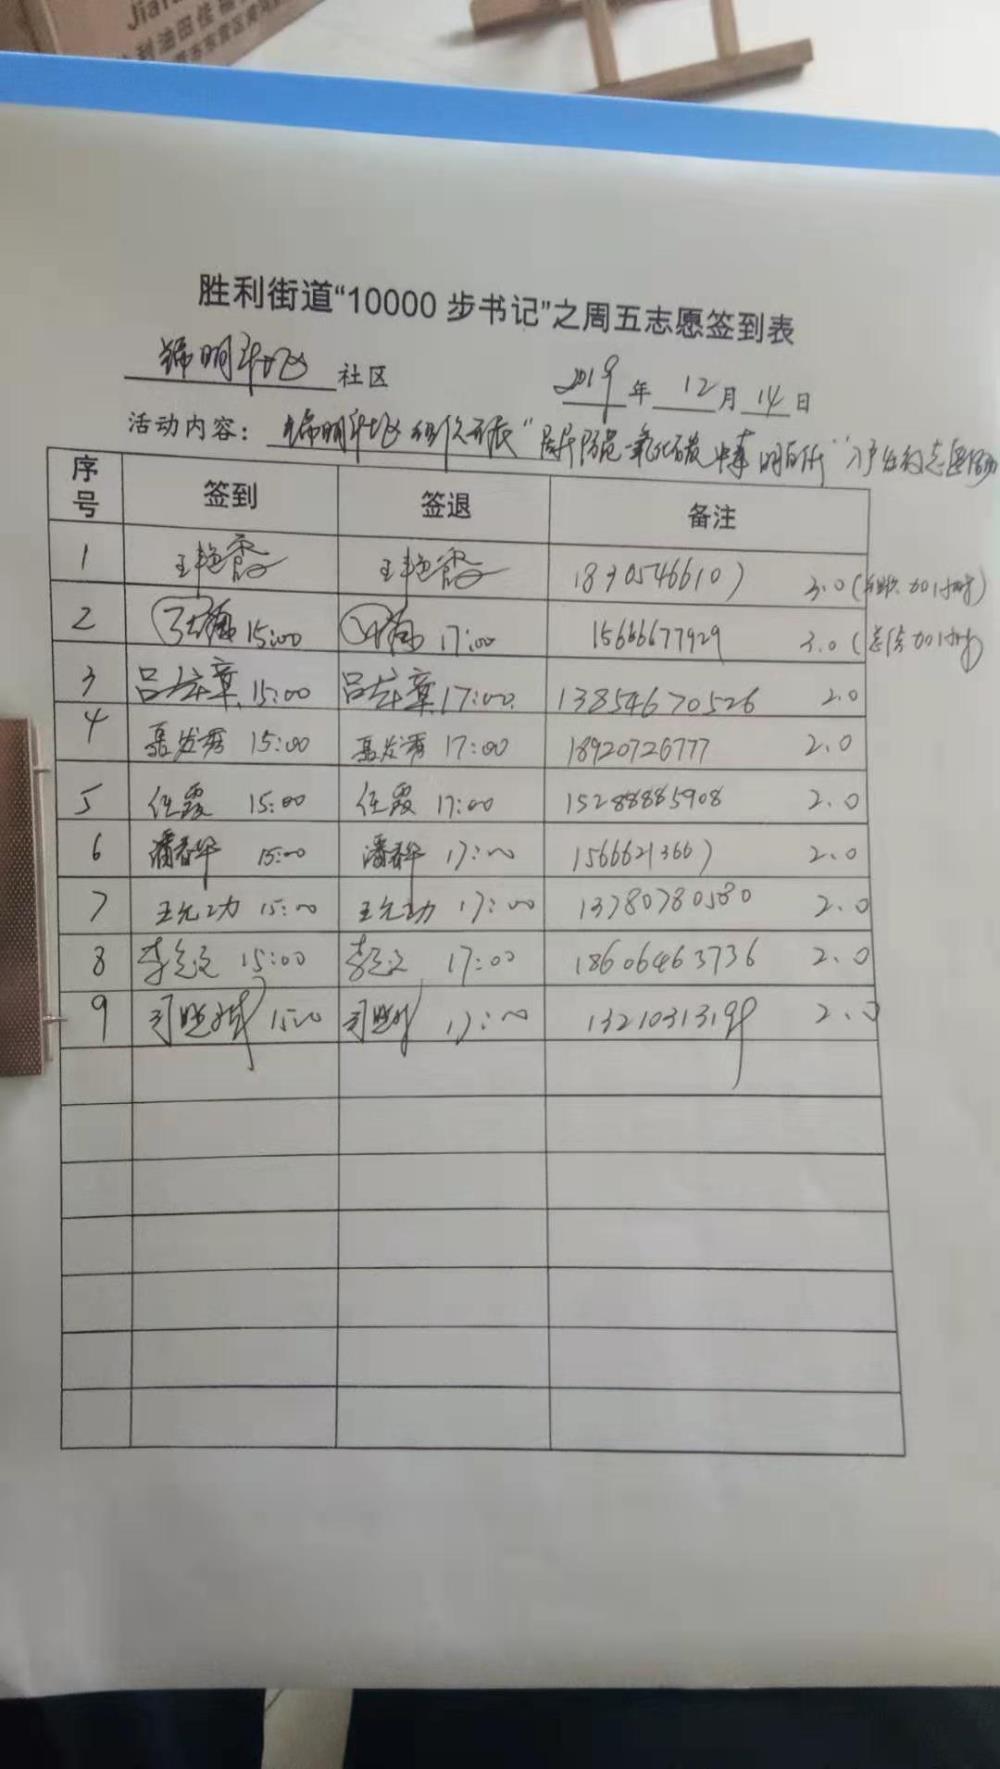 Jia
胜利街道“10000步书记”之周五志愿签到表
锦明社区
2019年12月14日
活动内容：锦明 开展“居民防范一氧化碳中毒明白纸”入户
序号 签到 签退 备注
1 王艳霞 王艳霞 18305466107 3.0(加1小时)
2 15:00 17:00 15666677929 3.0(总结加1小时)
3 吕 章 15:00 吕 章 17:00 13854670526 2.0
4 聂发秀 15:00 聂发秀 17:00 18920726777 2.0
5 任霞 15:00 任霞 17:00 15288885908 2.0
6 潘春华 15:00 潘春华 17:00 15666213667 2.0
7 王允功 15:00 王允功 17:00 13780780580 2.0
8 李 文 15:00 李 文 17:00 18606463736 2.0
9 司 15:00 司 17:00 13210313199 2.0